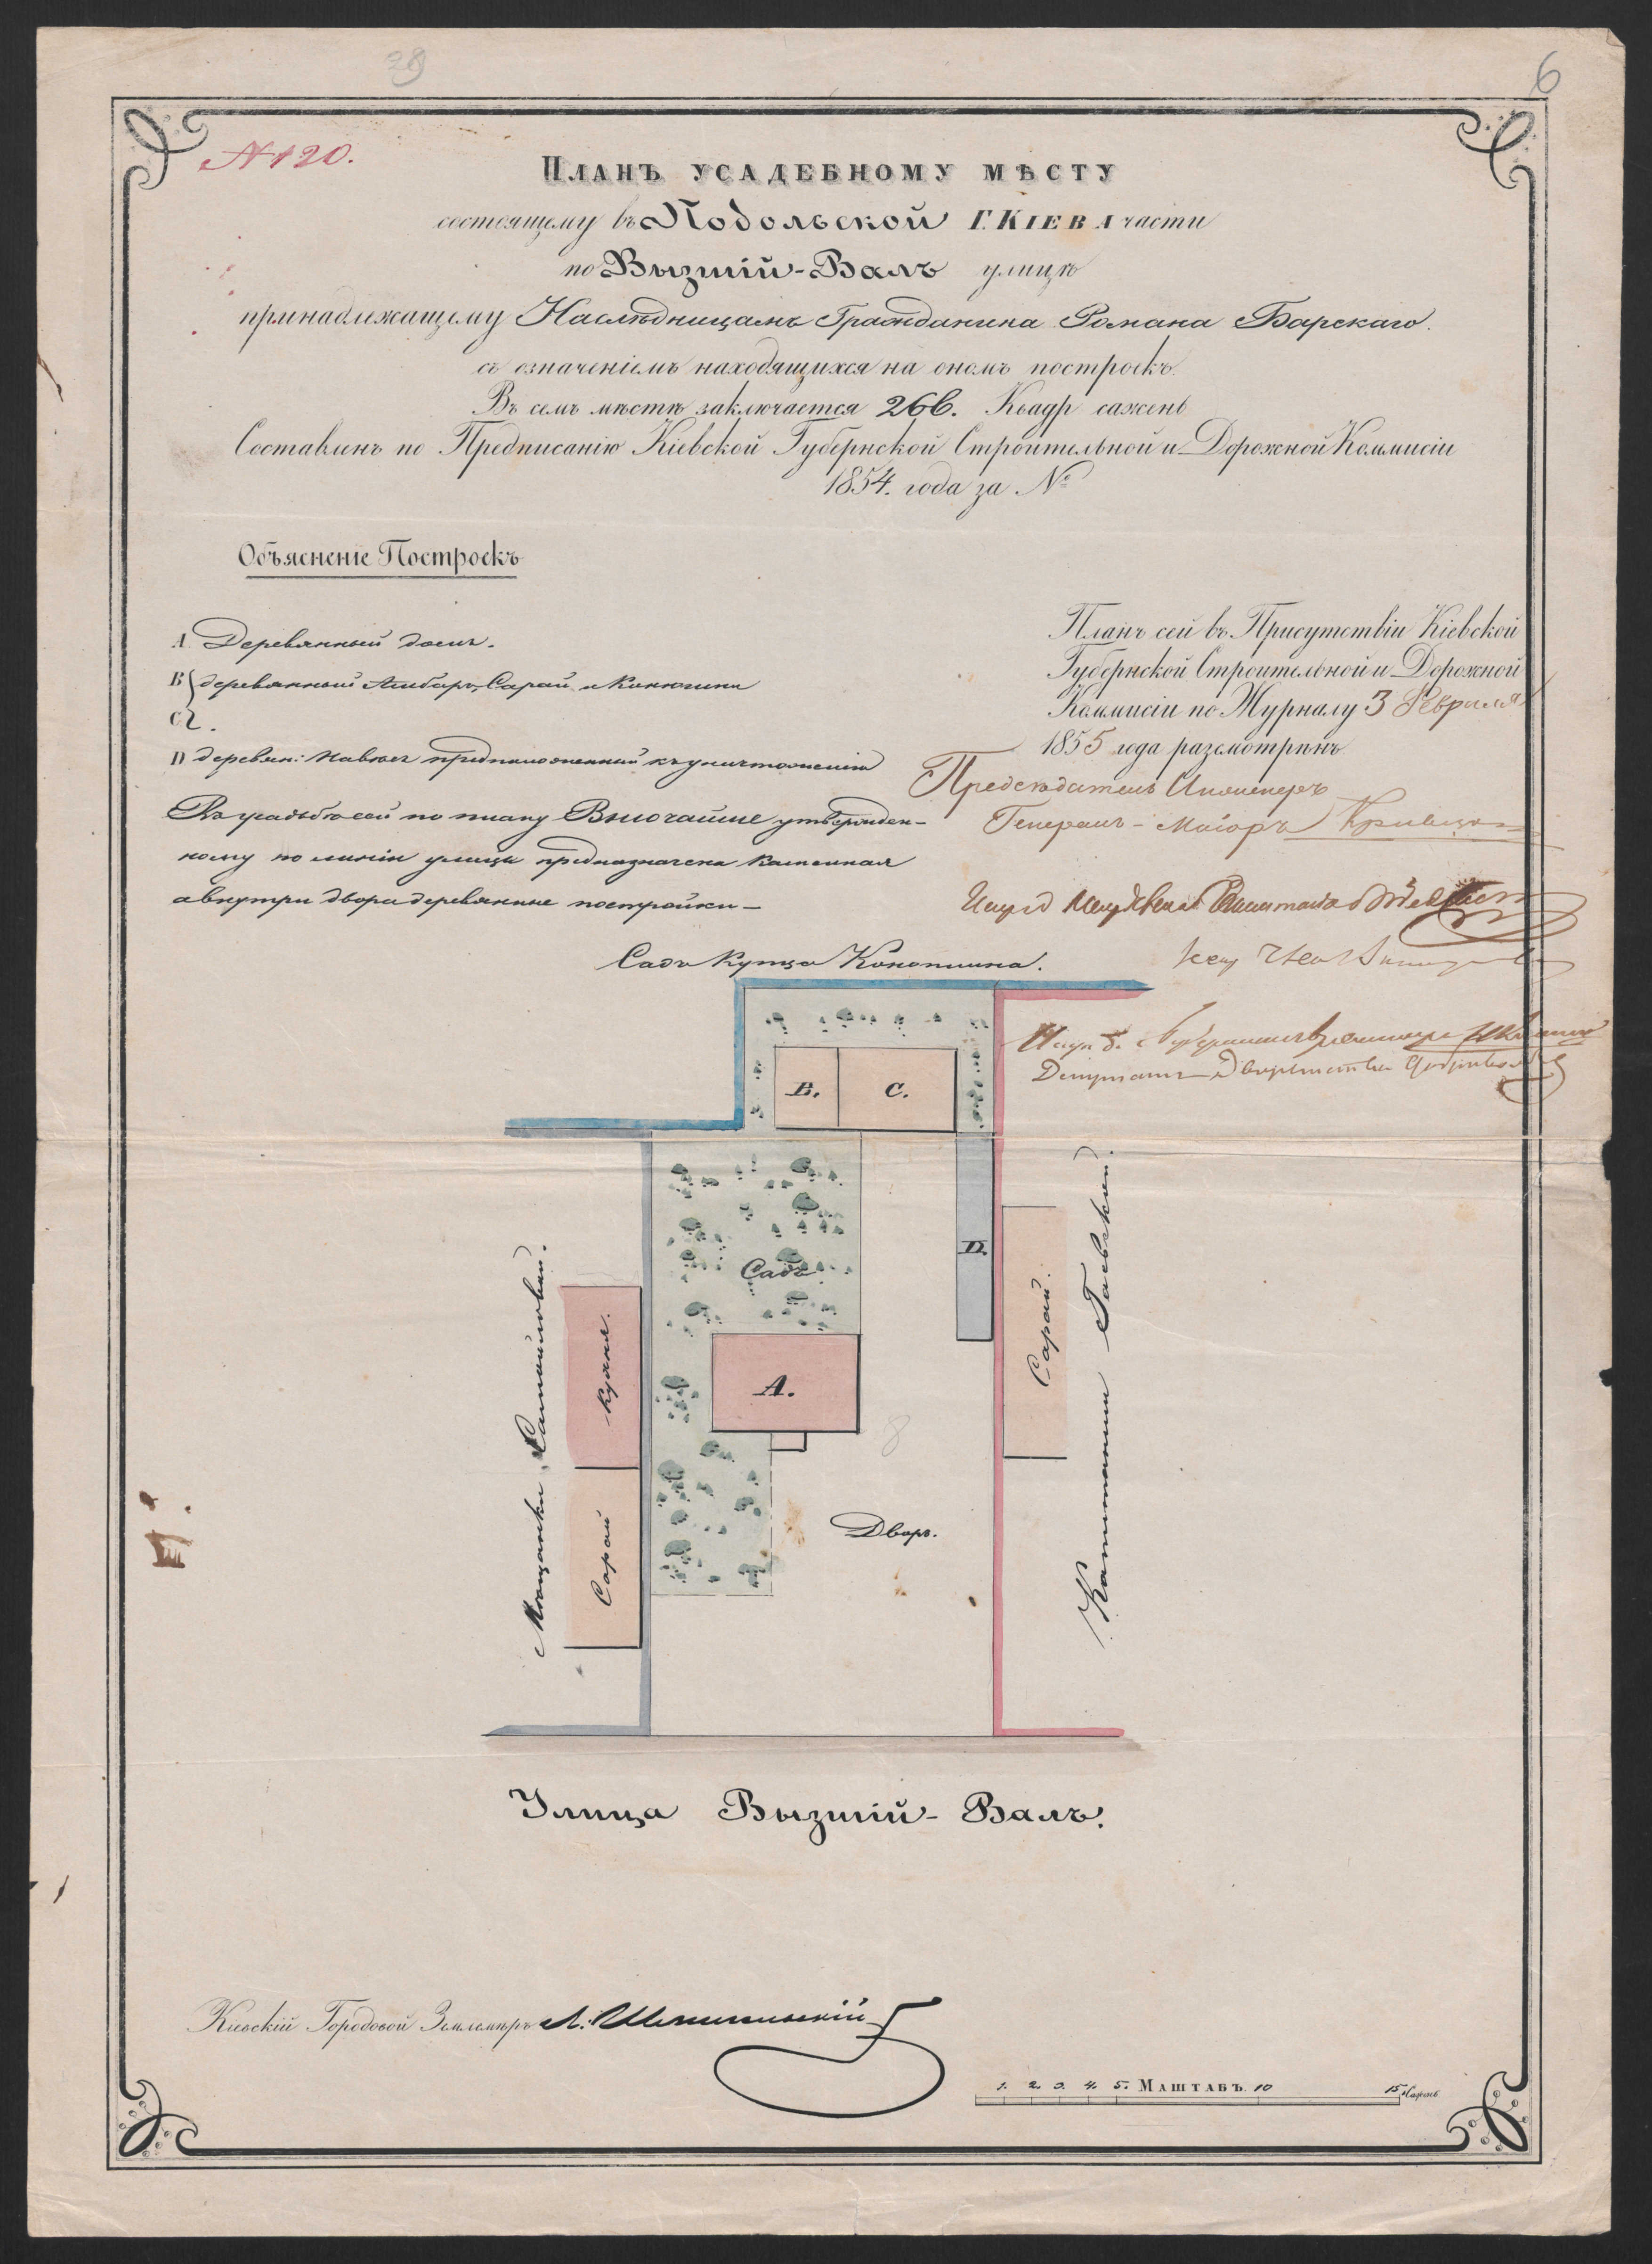 28
6
N 120.
Планъ усадебному мѣсту
состоящему въ Подольской Г. Кіева части
по Вызшій-Валъ улицѣ
принадлежащему Наслѣдницамъ Гражданина Романа Барскаго.
съ означеніемъ находящихся на ономъ построекъ.
Въ семъ мѣстѣ заключается 266. Квадр сажень
Составленъ по Предписанію Кіевской Губернской Строительной и Дорожной Коммисіи
1854. года за №
Объясненіе Построекъ
A. Деревянный домъ.
B { деревянный Амбаръ, Сарай и Конюшни
C
D деревян: Навѣсъ предположенный къ уничтоженію
Въ усадьбѣ сей по плану Высочайше утвержден-
ному по линіи улицы предназначена каменная
а внутри двора деревянные постройки —
Планъ сей въ Присутствіи Кіевской
Губернской Строительной и Дорожной
Коммисіи по Журналу 3 Февраля
1855 года разсмотрѣнъ
Предсѣдатель Инженеръ
Генералъ-Маіоръ
Депутатъ Дворянства
Садъ Купца Конопшина.
B.
C.
Садъ
D.
A.
8
Дворъ.
Кухня.
Сарай
Мѣщанки Самойловой.
Сарай.
Капитанши Гаевской.
Улица Вызшій-Валъ.
Кіевскій Городовой Землемѣръ Л.
1. 2. 3. 4. 5. Маштабъ 10 15 Сажень